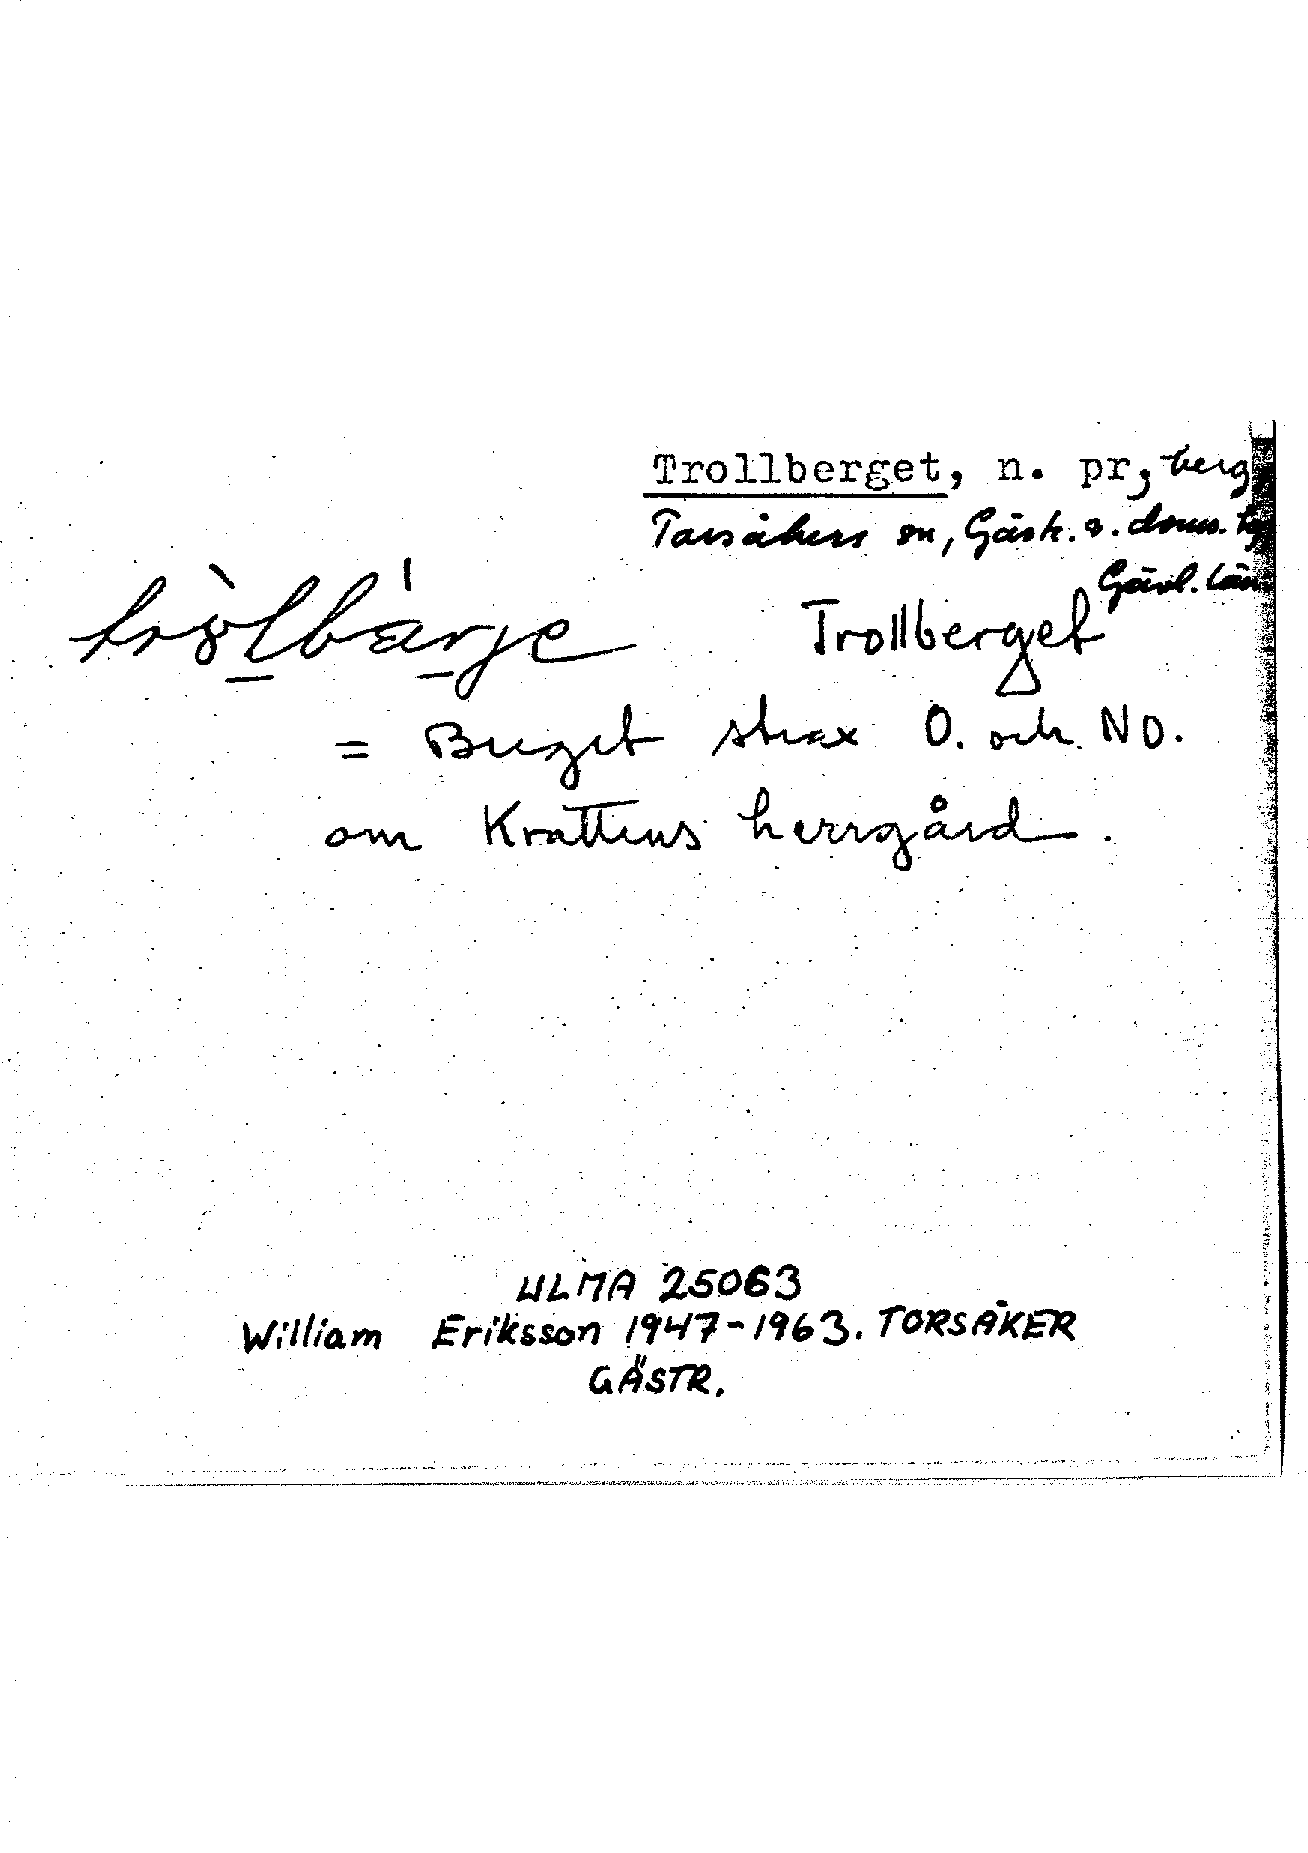 Trollberget, n. pr, berg
Torsåkers sn, Gästr. ö. doms. tg
Gävl. län
Trollberget
= Berget strax O. och NO.
om Krattens herrgård.
ULMA 25063
William Eriksson 1947-1963. TORSÅKER
GÄSTR.